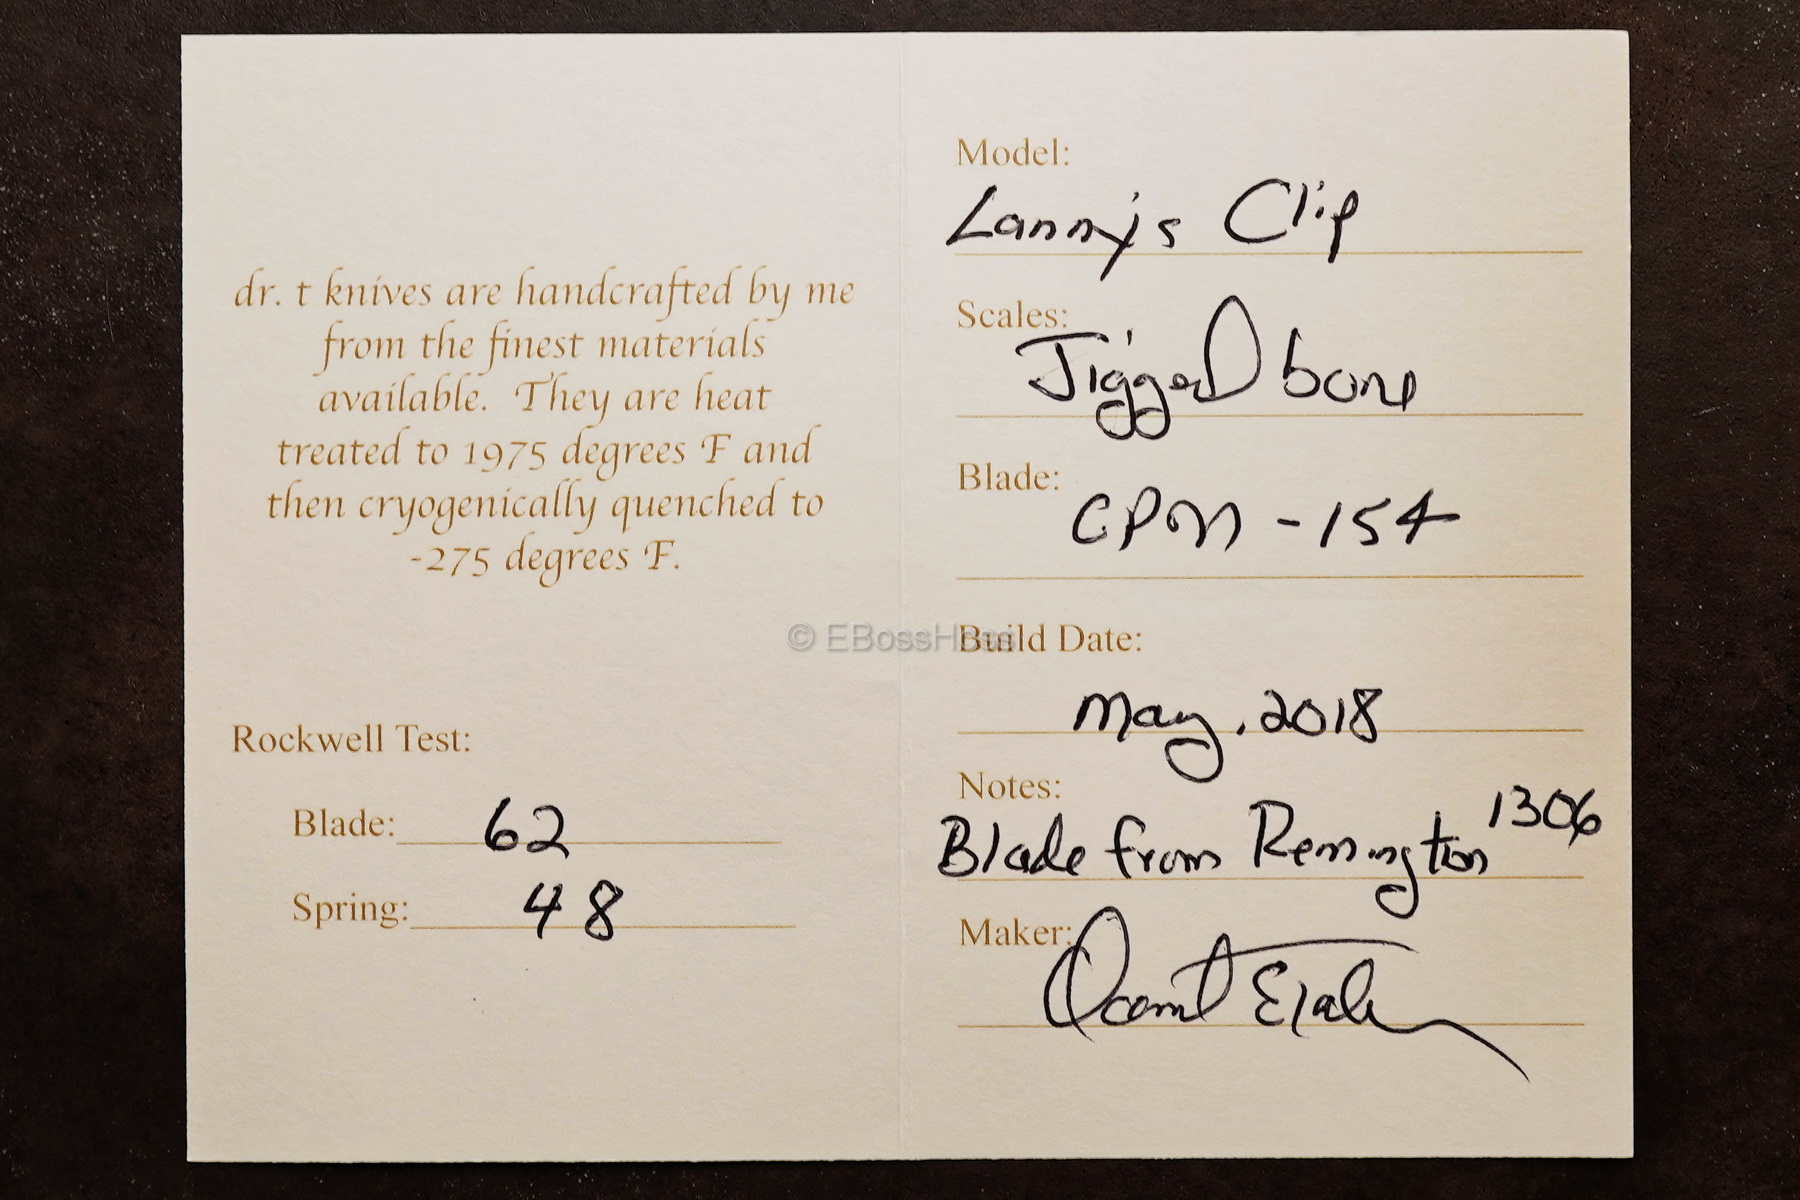 dr. t knives are handcrafted by me
from the finest materials
available. They are heat
treated to 1975 degrees F and
then cryogenically quenched to
-275 degrees F.
Rockwell Test:
Blade: 62
Spring: 48
Model:
Lanny's Clip
Scales:
Jigged bone
Blade:
CPM-154
© EBossHoss
Build Date:
May, 2018
Notes:
Blade from Remington 1306
Maker: